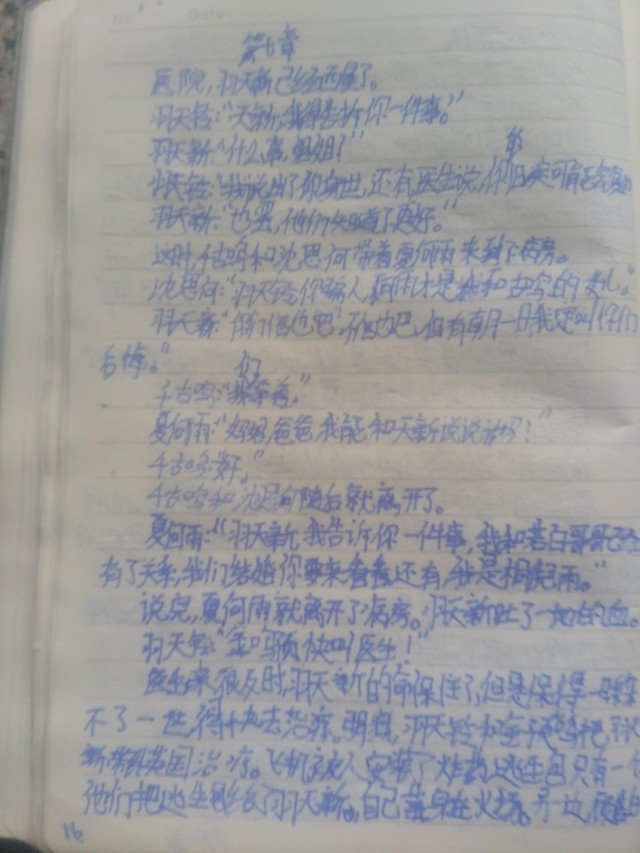 第七章
医院,羽天新已经苏醒了。
羽天铃:“天新,我得告诉你一件事。”
羽天新:“什么事,姐姐?”
羽天铃:“我说出了你身世,还有医生说,你的旧疾可能
羽天新:“也罢,他们知道了更好。”
这时,千古鸣和沈思何带着夏何雨来到了病房。
沈思何:“羽天铃你骗人,何雨才是我和古鸣的女儿。”
羽天新:“你们信也罢,不信也罢,但有朝一日我定叫你们
后悔。”
千古鸣:“我们等着。”
夏何雨:“妈妈,爸爸,我能和天新说说话吗?”
千古鸣:“好。”
千古鸣和沈思何随后就离开了。
夏何雨:“羽天新,我告诉你一件事,我和若白哥哥已经
有了关系,我们结婚你要来看看还有,我是相何雨。”
说完,夏何雨就离开了病房。羽天新吐了一地的血。
羽天铃:“快叫医生!”
医生来很及时,羽天新的命保住了,但是保得一时保
不了一世,得
去治疗。羽天铃和
英国治疗。飞机被人安装了炸药,逃生包只有一个
他们把逃生包给了羽天新。自己葬身在火场。另一边,
16